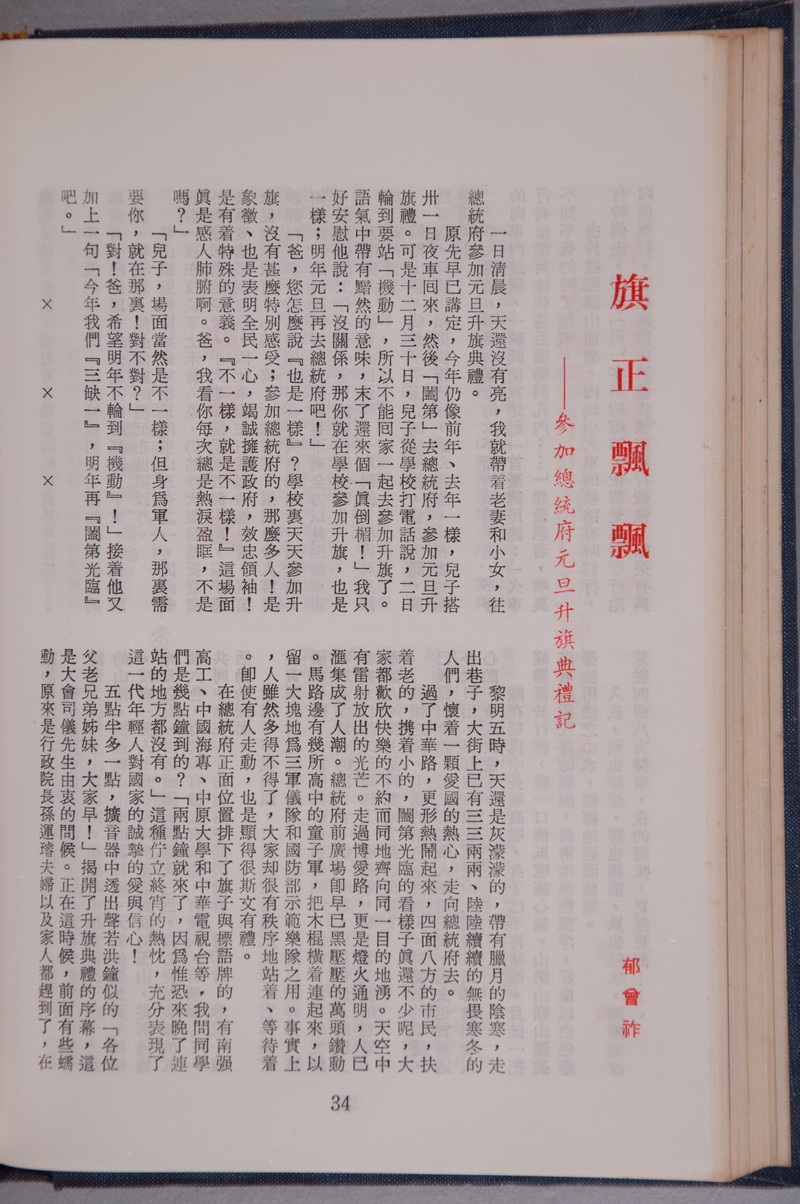 旗正飄飄
——參加總統府元旦升旗典禮記
郁曾祚
一日清晨，天還沒有亮，我就帶着老妻和小女，往
總統府參加元旦升旗典禮。
原先早已講定，今年仍像前年、去年一樣，兒子搭
卅一日夜車回來，然後「闔第」去總統府，參加元旦升
旗禮。可是十二月三十日，兒子從學校打電話說，二日
輪到要站「機動」，所以不能回家一起去參加升旗了。
語氣中帶有黯然的意味，末了還來個「眞倒楣！」我只
好安慰他說：「沒關係，那你就在學校參加升旗，也是
一樣；明年元旦再去總統府吧！」
「爸，您怎麼說『也是一樣』？學校裏天天參加升
旗，沒有甚麼特別感受；參加總統府的，那麼多人！是
象徵、也是表明全民一心，竭誠擁護政府，效忠領袖！
是有着特殊的意義。『不一樣，就是不一樣！』這場面
眞是感人肺腑啊。爸，我看你每次總是熱淚盈眶，不是
嗎？」
「兒子，場面當然是不一樣；但身爲軍人，那裏需
要你，就在那裏！對不對？」
「對！爸，希望明年不輪到『機動』！」接着他又
加上一句「今年我們『三缺一』，明年再『闔第光臨』
吧。」
×　×　×
黎明五時，天還是灰濛濛的，帶有臘月的陰寒，走
出巷子，大街上已有三三兩兩、陸陸續續的無畏寒冬的
人們，懷着一顆愛國的熱心，走向總統府去。
過了中華路，更形熱鬧起來，四面八方的市民，扶
着老的，携着小的，闔第光臨的看樣子眞還不少呢，大
家都歡欣快樂的不約而同地齊向同一目的地湧。天空中
有雷射放出的光芒。走過博愛路，更是燈火通明，人已
滙集成了人潮。總統府前廣場卽早已黑壓壓的萬頭鑽動
。馬路邊有幾所高中的童子軍，把木棍橫着連起來，以
留一大塊地爲三軍儀隊和國防部示範樂隊之用。事實上
，人雖然多得不得了，大家却很有秩序地站着、等待着
。卽使有人走動，也是顯得很斯文有禮。
在總統府正面位置排下了旗子與標語牌的，有南强
高工、中國海專、中原大學和中華電視台等，我問同學
們是幾點鐘到的？「兩點鐘就來了，因爲惟恐來晚了連
站的地方都沒有。」這種佇立終宵的熱忱，充分表現了
這一代年輕人對國家的誠摯的愛與信心！
五點半多一點，擴音器中透出聲若洪鐘似的「各位
父老兄弟姊妹，大家早！」揭開了升旗典禮的序幕，這
是大會司儀先生由衷的問候。正在這時候，前面有些蠕
動，原來是行政院長孫運璿夫婦以及家人都趕到了，在
34